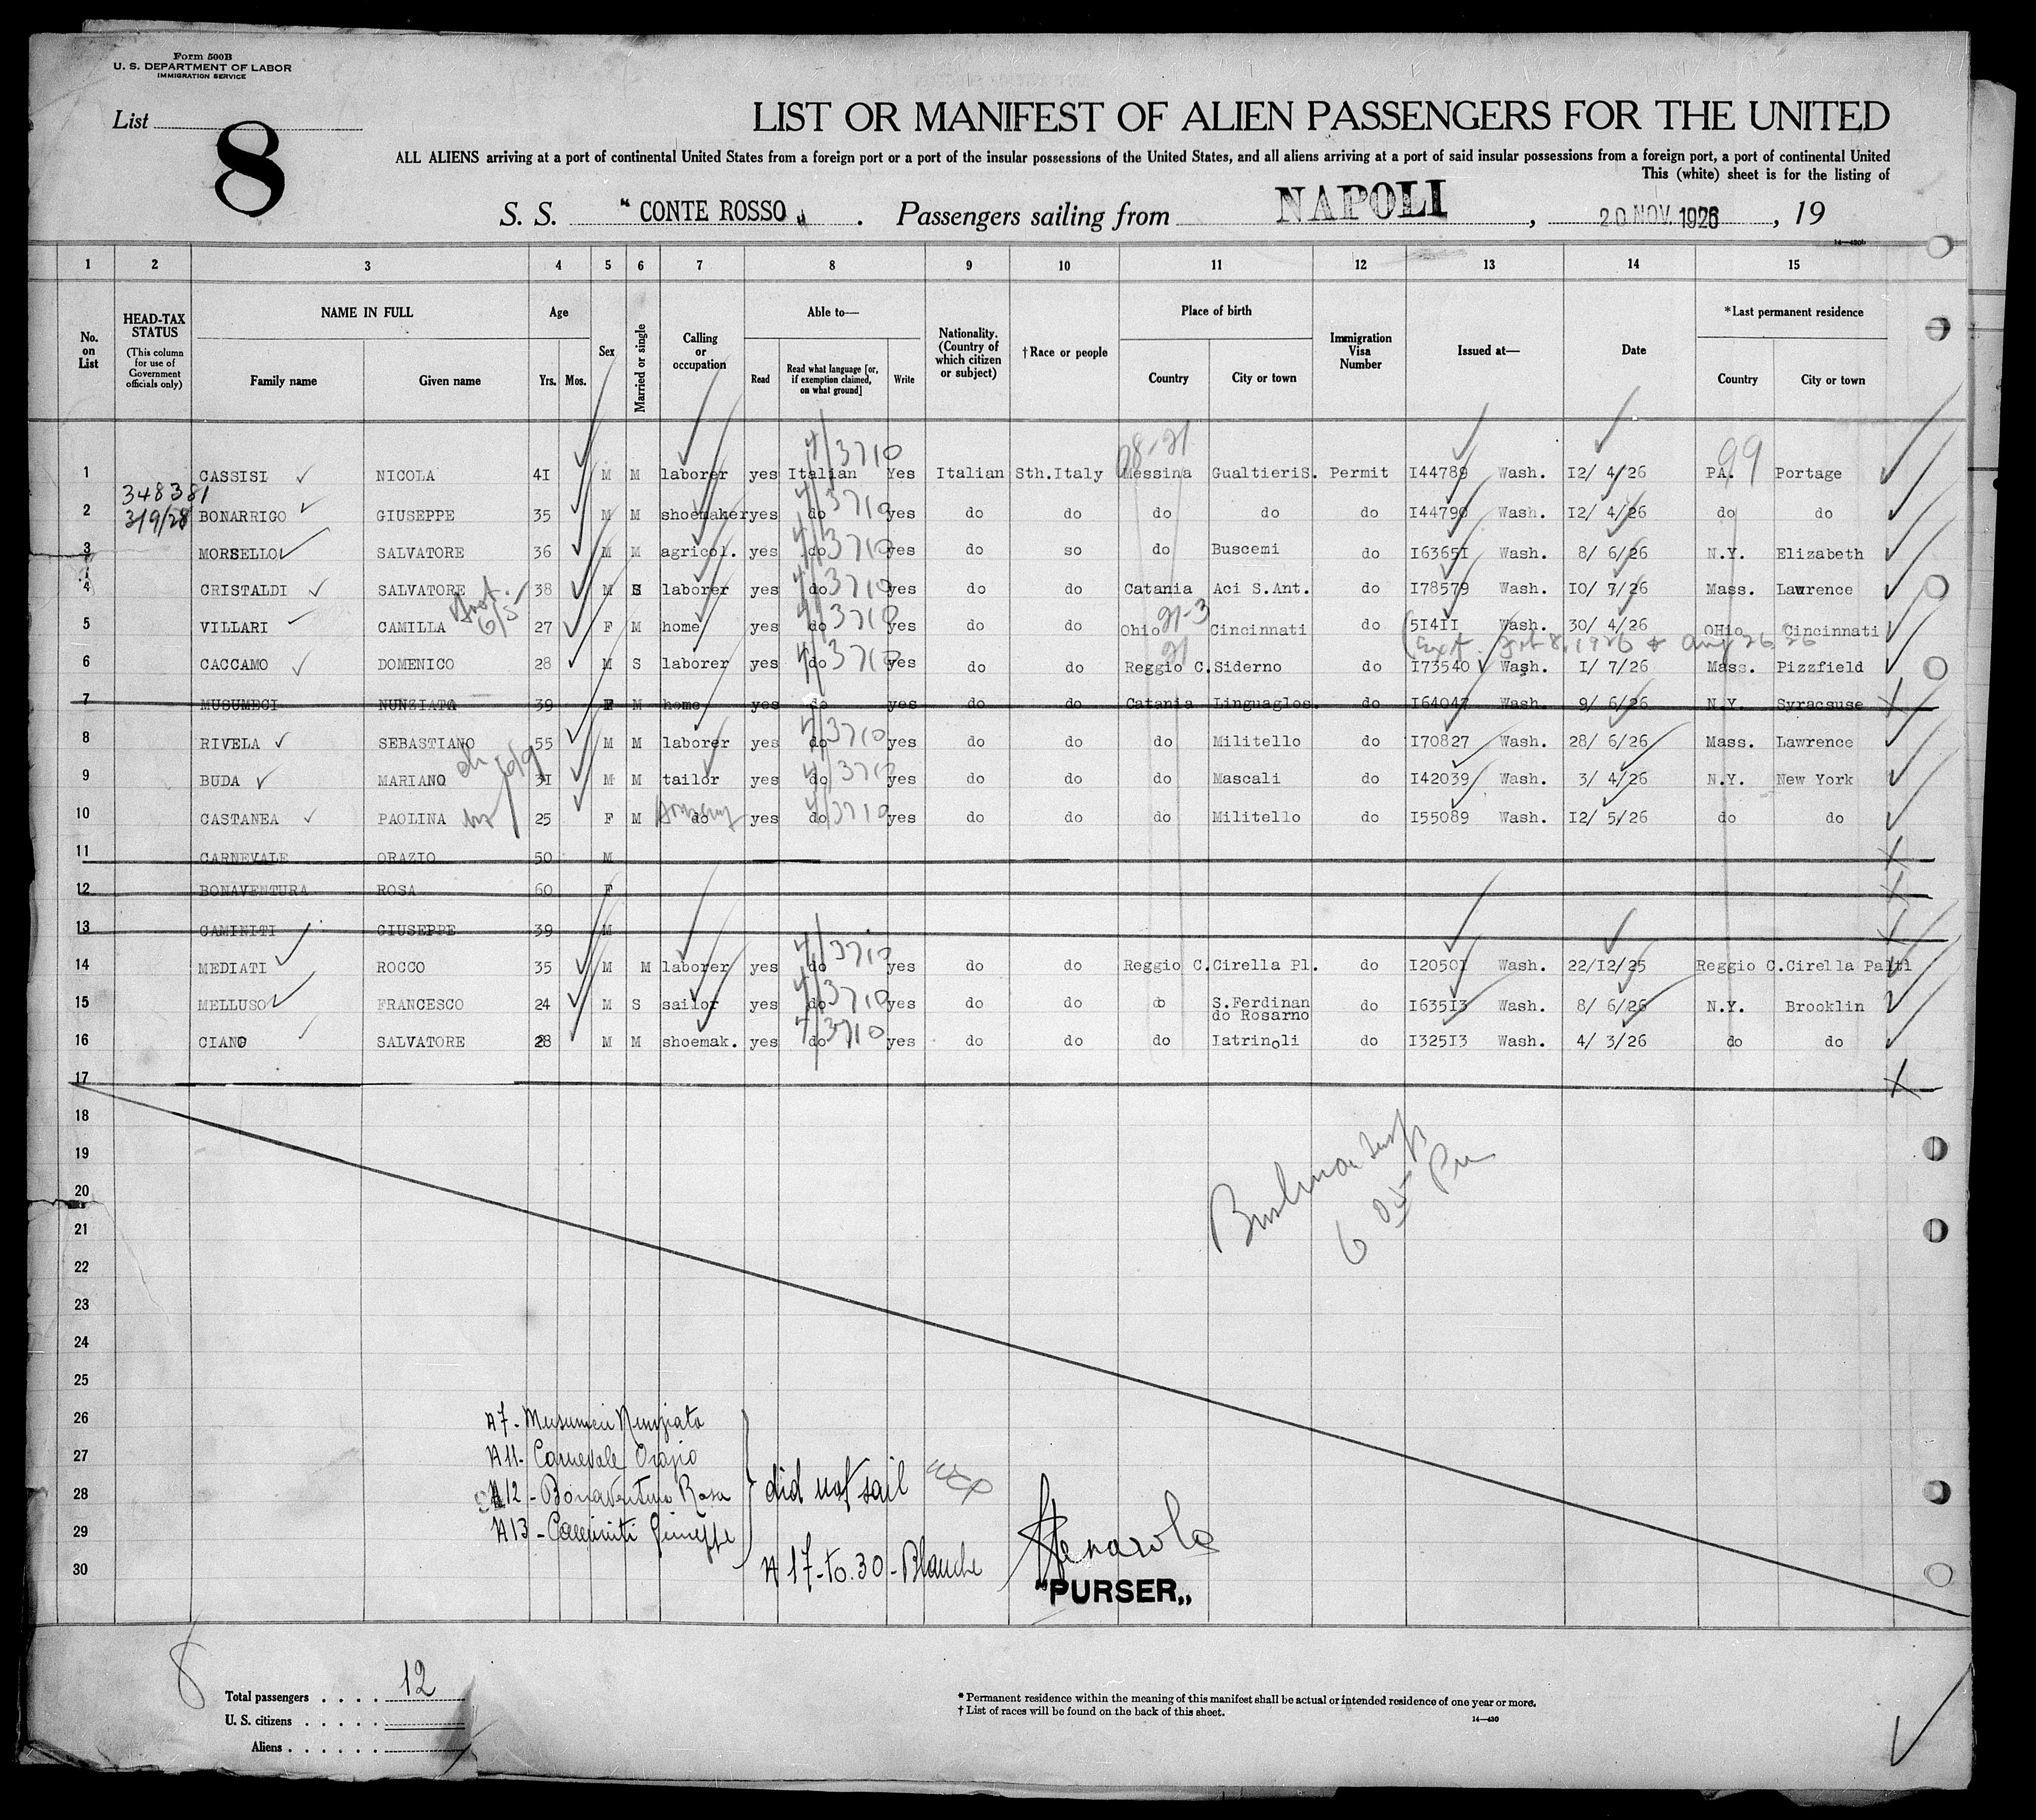 Form 500B
U. S. DEPARTMENT OF LABOR
IMMIGRATION SERVICE
List 8
LIST OR MANIFEST OF ALIEN PASSENGERS FOR THE UNITED
ALL ALIENS arriving at a port of continental United States from a foreign port or a port of the insular possessions of the United States, and all aliens arriving at a port of said insular possessions from a foreign port, a port of continental United
This (white) sheet is for the listing of
S. S. "CONTE ROSSO„ . Passengers sailing from NAPOLI , 20 NOV. 1926 , 19
14—430b
1 2 3 4 5 6 7 8 9 10 11 12 13 14 15
No. on List
HEAD-TAX STATUS (This column for use of Government officials only)
NAME IN FULL
Family name Given name
Age
Yrs. Mos.
Sex
Married or single
Calling or occupation
Able to—
Read
Read what language [or, if exemption claimed, on what ground]
Write
Nationality. (Country of which citizen or subject)
†Race or people
Place of birth
Country City or town
Immigration Visa Number
Issued at—
Date
*Last permanent residence
Country City or town
1 CASSISI NICOLA 41 M M laborer yes Italian 4/3710 Yes Italian Sth.Italy Messina GualtieriS. Permit I44789 Wash. I2/ 4/26 PA. 99 Portage
348381
3/9/28
2 BONARRIGO GIUSEPPE 35 M M shoemaker yes do 4/3710 yes do do do do do I44790 Wash. I2/ 4/26 do do
3 MORSELLO SALVATORE 36 M M agricol. yes do 4/3710 yes do so do Buscemi do I6365I Wash. 8/ 6/26 N.Y. Elizabeth
4 CRISTALDI SALVATORE 38 M S laborer yes do 4/3710 yes do do Catania Aci S.Ant. do I78579 Wash. IO/ 7/26 Mass. Lawrence
5 VILLARI CAMILLA 27 F M home yes do 4/3710 yes do do Ohio 21-3 Cincinnati do 5I4II Wash. 30/ 4/26 OHio Cincinnati
6 CACCAMO DOMENICO 28 M S laborer yes do 4/3710 yes do do Reggio C. Siderno do I73540 Wash. I/ 7/26 Mass. Pizzfield
7 MUSUMECI NUNZIATA 39 F M home yes do yes do do Catania Linguaglos. do I64047 Wash. 9/ 6/26 N.Y. Syracsuse
8 RIVELA SEBASTIANO 55 M M laborer yes do 4/3710 yes do do do Militello do I70827 Wash. 28/ 6/26 Mass. Lawrence
9 BUDA MARIANO 31 M M tailor yes do 4/3710 yes do do do Mascali do I42039 Wash. 3/ 4/26 N.Y. New York
10 CASTANEA PAOLINA 25 F M do yes do 4/3710 yes do do do Militello do I55089 Wash. I2/ 5/26 do do
11 CARNEVALE ORAZIO 50 M
12 BONAVENTURA ROSA 60 F
13 CAMINITI GIUSEPPE 39 M
14 MEDIATI ROCCO 35 M M laborer yes do 4/3710 yes do do Reggio C. Cirella Pl. do I2050I Wash. 22/I2/25 Reggio C. Cirella Palti
15 MELLUSO FRANCESCO 24 M S sailor yes do 4/3710 yes do do do S.Ferdinan do Rosarno do I635I3 Wash. 8/ 6/26 N.Y. Brooklin
16 CIANO SALVATORE 28 M M shoemak. yes do 4/3710 yes do do do Iatrinoli do I325I3 Wash. 4/ 3/26 do do
17
18
19
20
21
22
23
24
25
26
27
28
29
30
6 05 Pm
A7- Musumeci Nunziata
A11- Carnevale Orazio
A12 - Bonaventura Rosa
A13 - Caminiti Giuseppe
did not sail
A 17-to.30 - Blanche
"PURSER„
8
Total passengers . . . . 12
U. S. citizens . . . . .
Aliens . . . . . .
* Permanent residence within the meaning of this manifest shall be actual or intended residence of one year or more.
† List of races will be found on the back of this sheet.
14—430